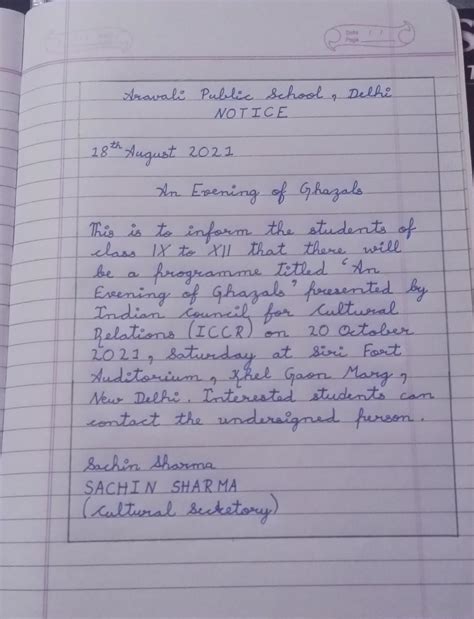 Date / /
Page
Aravali Public School, Delhi
NOTICE
18th August 2021
An Evening of Ghazals
This is to inform the students of
class IX to XII that there will
be a programme titled 'An
Evening of Ghazals' presented by
Indian Council for Cultural
Relations (ICCR) on 20 October
2021, Saturday at Siri Fort
Auditorium, Khel Gaon Marg,
New Delhi. Interested students can
contact the undersigned person.
Sachin Sharma
SACHIN SHARMA
(Cultural Secketory)